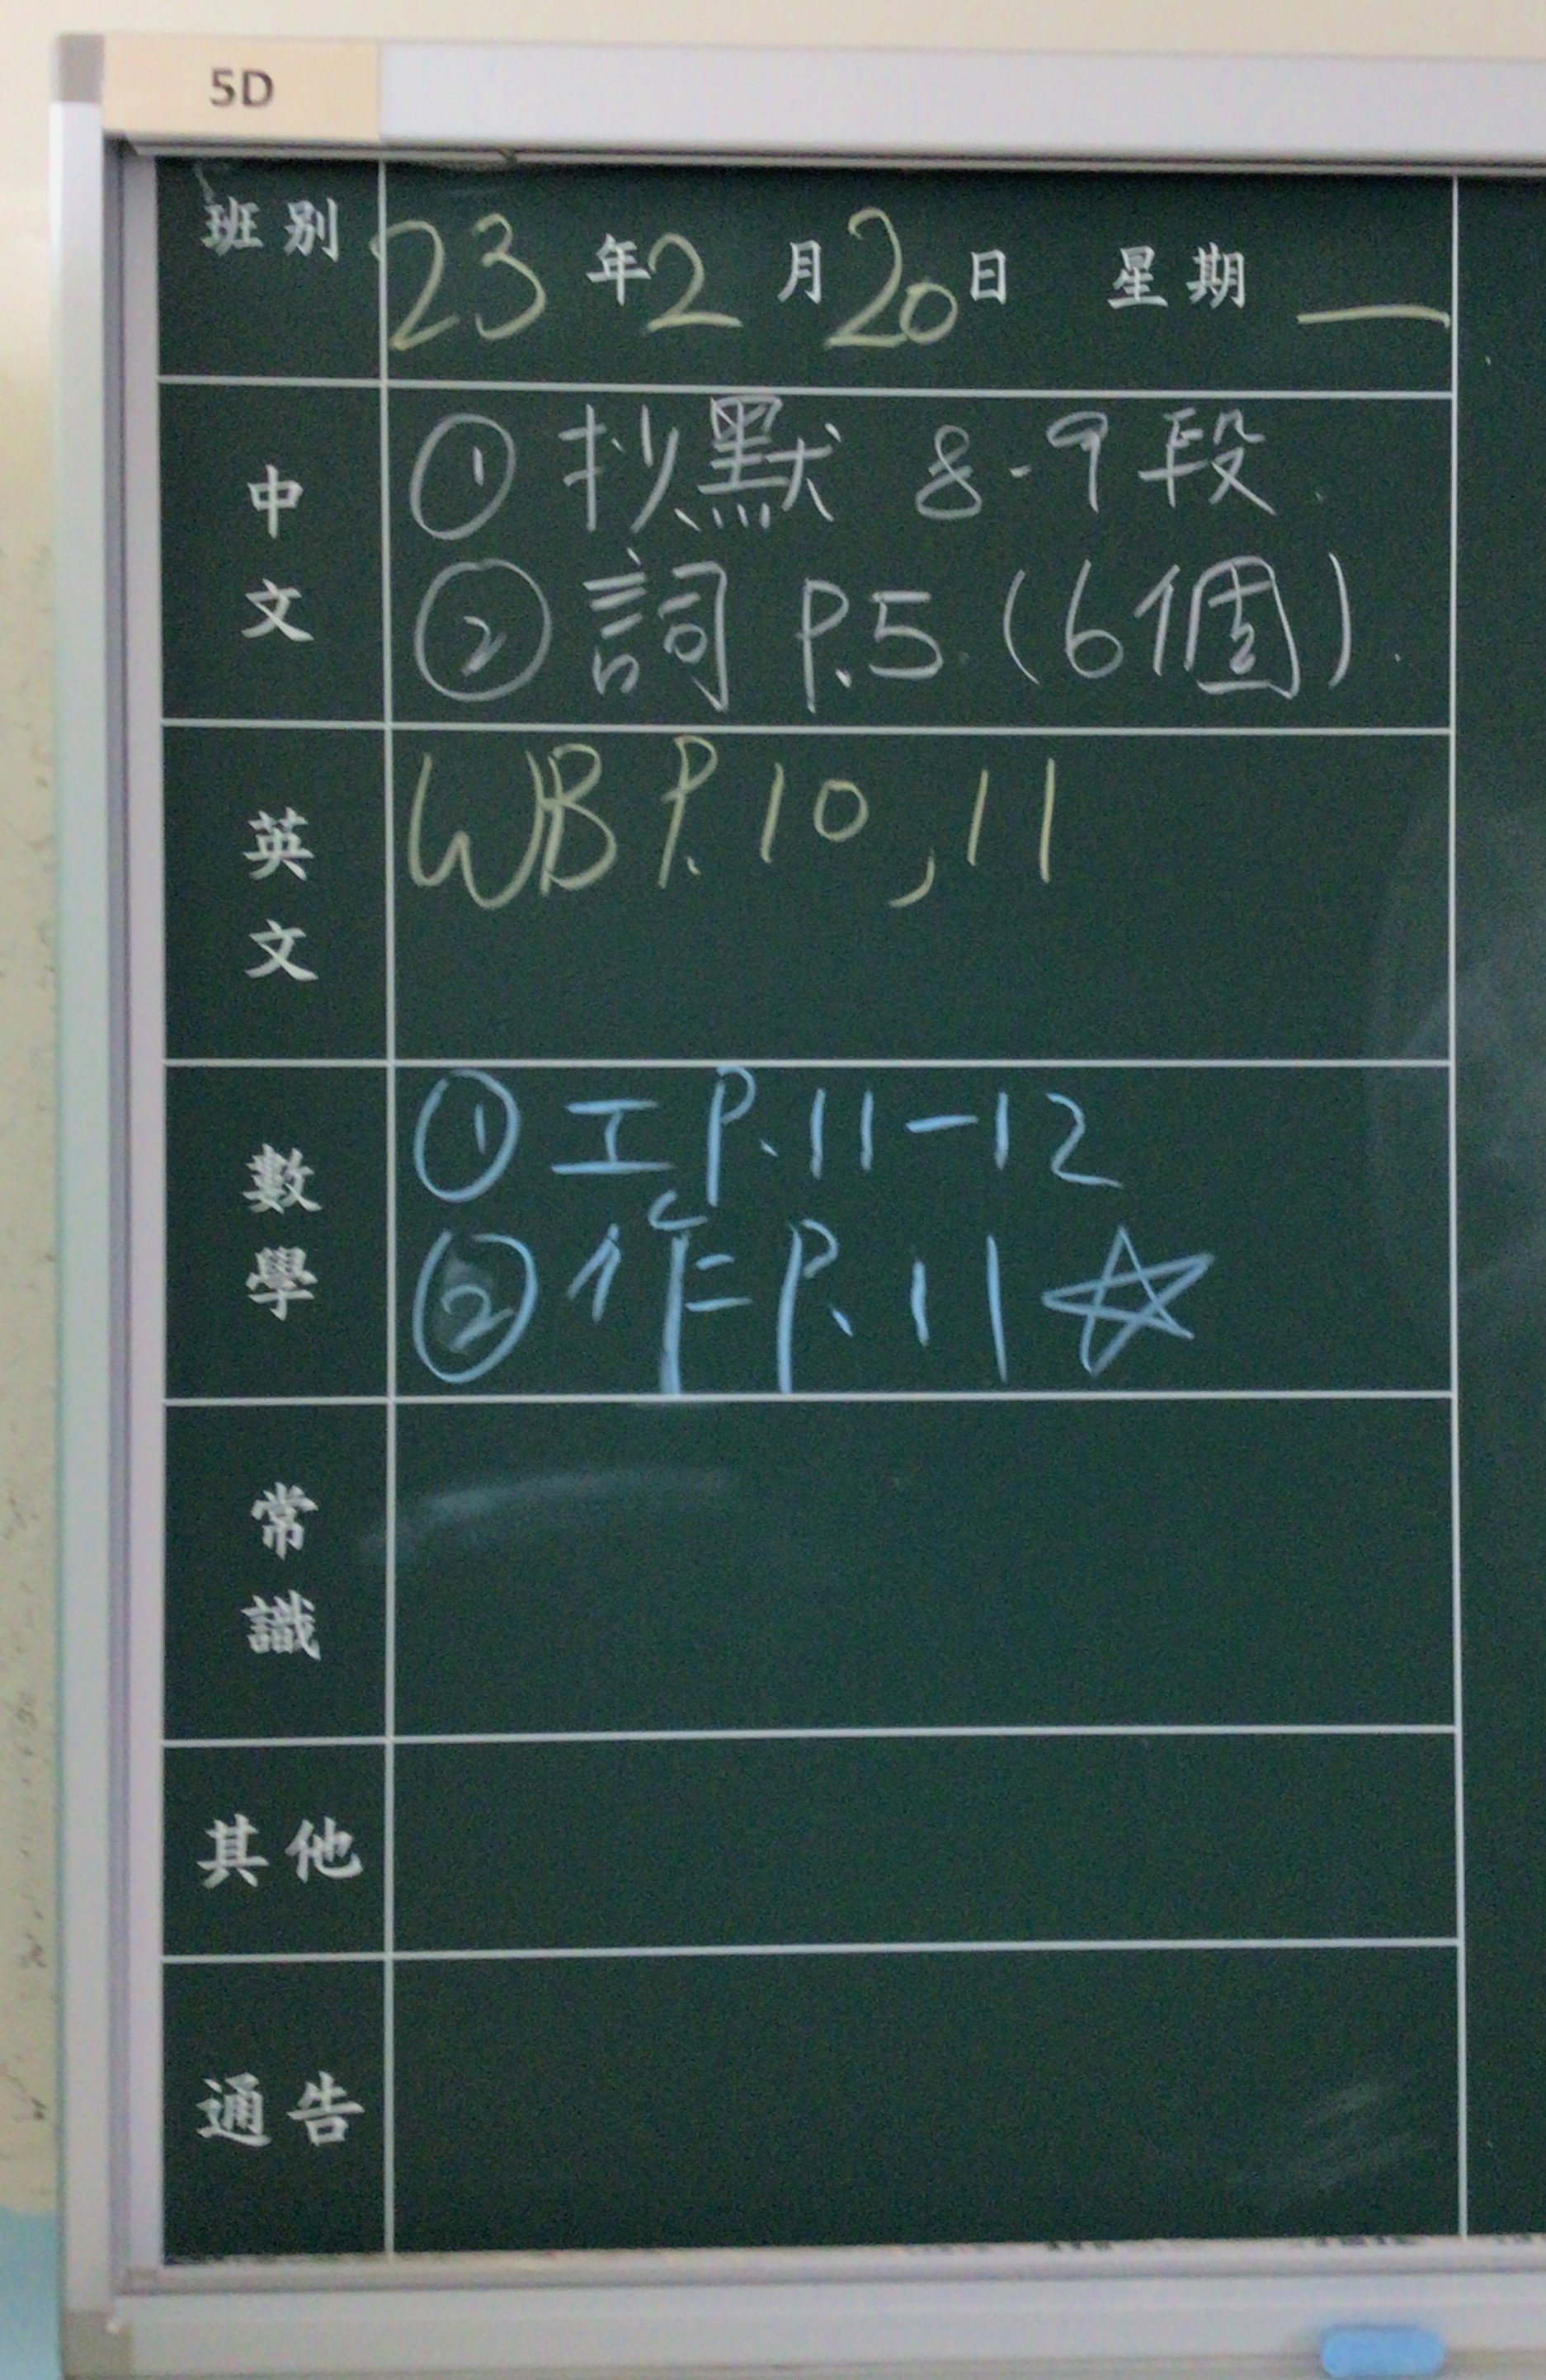 5D
班別 23年2月20日 星期一
中文
① 抄默 8-9段.
② 詞 P.5 (6個).
英文
WB P.10, 11
數學
① 工 P.11-12
② 作 P.11☆
常識
其他
通告